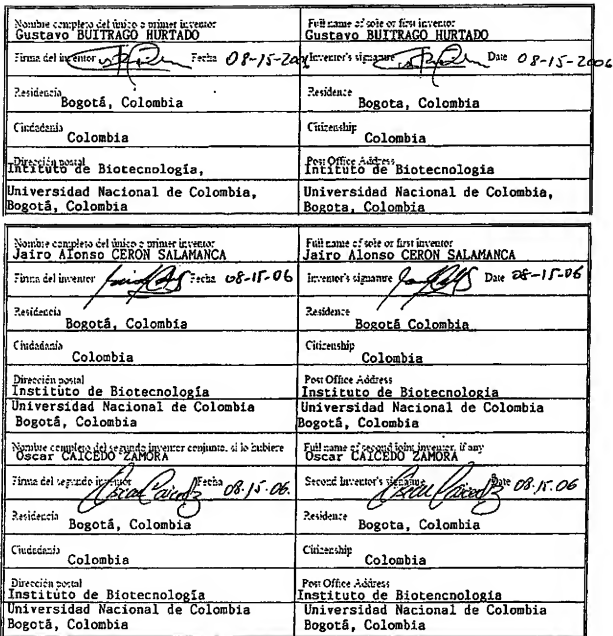 Nombre completo del único o primer inventor
Gustavo BUITRAGO HURTADO
Full name of sole or first inventor
Gustavo BUITRAGO HURTADO
Firma del inventor Fecha 08-15-2006
Inventor's signature Date 08-15-2006
Residencia
Bogotá, Colombia
Residence
Bogota, Colombia
Ciudadanía
Colombia
Citizenship
Colombia
Dirección postal
Intituto de Biotecnología,
Post Office Address
Intituto de Biotecnologia
Universidad Nacional de Colombia,
Bogotá, Colombia
Universidad Nacional de Colombia,
Bogota, Colombia
Nombre completo del único o primer inventor
Jairo Alonso CERON SALAMANCA
Full name of sole or first inventor
Jairo Alonso CERON SALAMANCA
Firma del inventor Fecha 08-15-06
Inventor's signature Date 08-15-06
Residencia
Bogotá, Colombia
Residence
Bogotá Colombia
Ciudadanía
Colombia
Citizenship
Colombia
Dirección postal
Instituto de Biotecnología
Post Office Address
Instituto de Biotecnologia
Universidad Nacional de Colombia
Bogotá, Colombia
Universidad Nacional de Colombia
Bogotá, Colombia
Nombre completo del segundo inventor conjunto, si lo hubiere
Oscar CAICEDO ZAMORA
Full name of second joint inventor, if any
Oscar CAICEDO ZAMORA
Firma del segundo inventor Oscar Caicedo Z Fecha 08.15.06.
Second Inventor's signature Oscar Caicedo Z Date 08.15.06
Residencia
Bogotá, Colombia
Residence
Bogota, Colombia
Ciudadanía
Colombia
Citizenship
Colombia
Dirección postal
Instituto de Biotecnología
Post Office Address
Instituto de Biotencnología
Universidad Nacional de Colombia
Bogotá, Colombia
Universidad Nacional de Colombia
Bogotá, Colombia